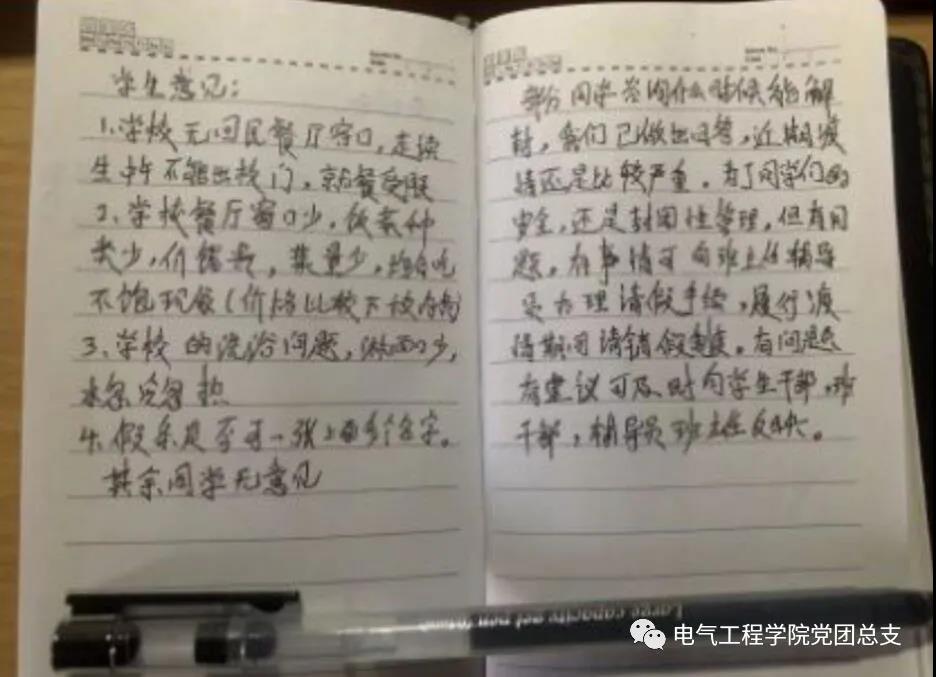 学生意见：
1.学校无回民餐厅窗口，走读
生中午不能出校门，就餐受限
2、学校餐厅窗口少，饭菜种
类少，价格贵，菜量少，均有吃
不饱现象（价格比校下较高）
3、学校的洗浴问题，淋雨口少，
水忽冷忽热
4.假条是否可一张上面多个名字。
其余同学无意见
部分同学咨询什么时候能解
封，我们已做出回答，近期疫
情还是比较严重，为了同学们的
安全，还是封闭性管理，但有问
题，有事情可向班主任辅导
员办理请假手续，履行疫
情期间请销假制度。有问题
有建议可及时向学生干部，班
干部，辅导员班主任反映。
Large capacity gel pen
电气工程学院党团总支